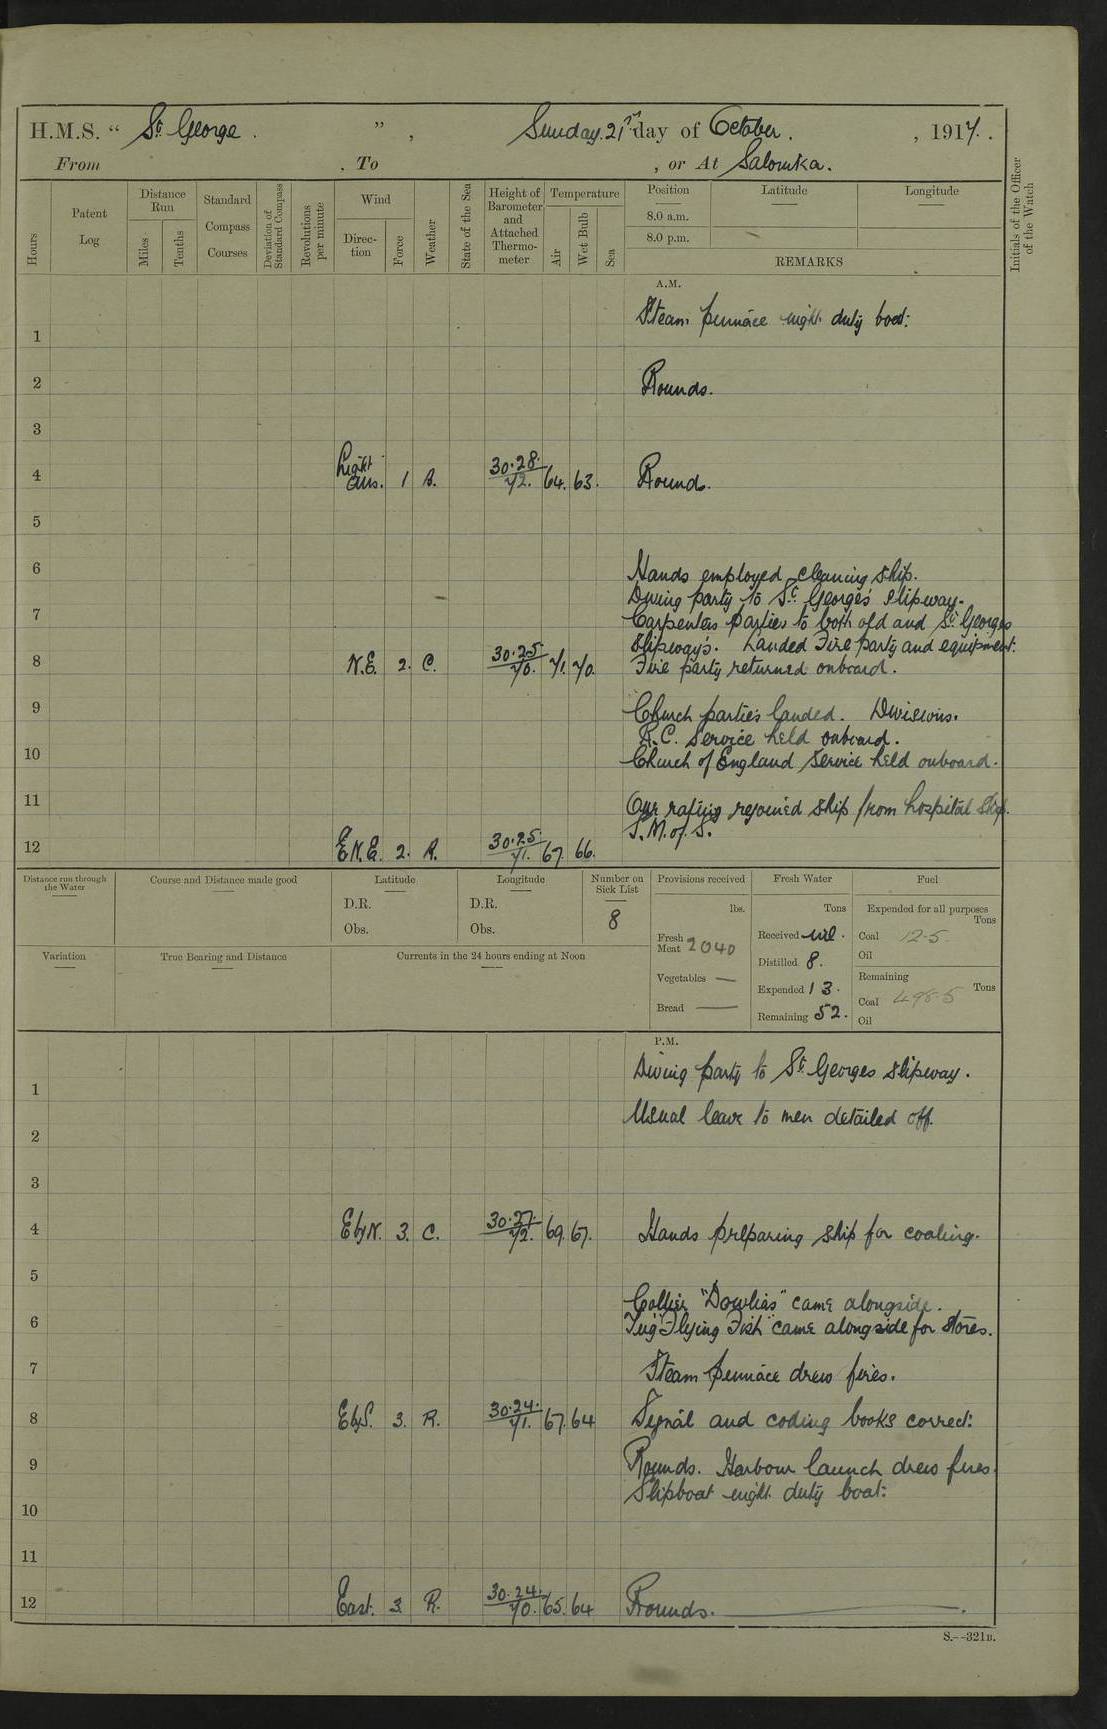 H.M.S. " St George . " , Sunday. 21st day of October . , 1917.
From . To , or At Salonika.
Hours
Patent Log
Distance Run
Miles
Tenths
Standard Compass Courses
Deviation of Standard Compass
Revolutions per minute
Wind
Direc-tion
Force
Weather
State of the Sea
Height of Barometer and Attached Thermo-meter
Temperature
Air
Wet Bulb
Sea
Position
8.0 a.m.
8.0 p.m.
Latitude
Longitude
REMARKS
Initials of the Officer of the Watch
A.M.
Steam pinnace night duty boat:
1
2 Rounds.
3
4 Light airs. 1 B. 30.28. 72. 64. 63. Rounds.
5
6 Hands employed cleaning ship.
Diving party to St George's slipway.
7 Carpenters parties to both old and St Georges
Slipway's. Landed Fire party and equipment.
8 N.E. 2. C. 30.25. 70. 71. 70. Fire party returned onboard.
9 Church parties landed. Divisions.
R.C. Service held onboard.
10 Church of England Service held onboard.
11 One rating rejoined ship from hospital ship.
12 E.N.E. 2. R. 30.25. 71. 67. 66.
Distance run through the Water
Course and Distance made good
Latitude
D.R.
Obs.
Longitude
D.R.
Obs.
Number on Sick List
8
Provisions received
lbs.
Fresh Meat 2040
Vegetables —
Bread —
Fresh Water
Tons
Received nil.
Distilled 8.
Expended 13.
Remaining 52.
Fuel
Expended for all purposes
Tons
Coal 12.5
Oil
Remaining
Tons
Coal 498.5
Oil
Variation
True Bearing and Distance
Currents in the 24 hours ending at Noon
P.M.
Diving party to St Georges slipway.
1
Usual leave to men detailed off.
2
3
4 E by N. 3. C. 30.27. 72. 69. 67. Hands preparing ship for coaling.
5
Collier "Dowlais" came alongside.
6 Tug "Flying Fish" came alongside for stores.
7 Steam pinnace drew fires.
8 E by S. 3. R. 30.24. 71. 67. 64 Signal and coding books correct:
9 Rounds. Harbour launch drew fires.
Slipboat night duty boat:
10
11
12 East. 3. R. 30.24. 70. 65. 64 Rounds.
S.--321B.